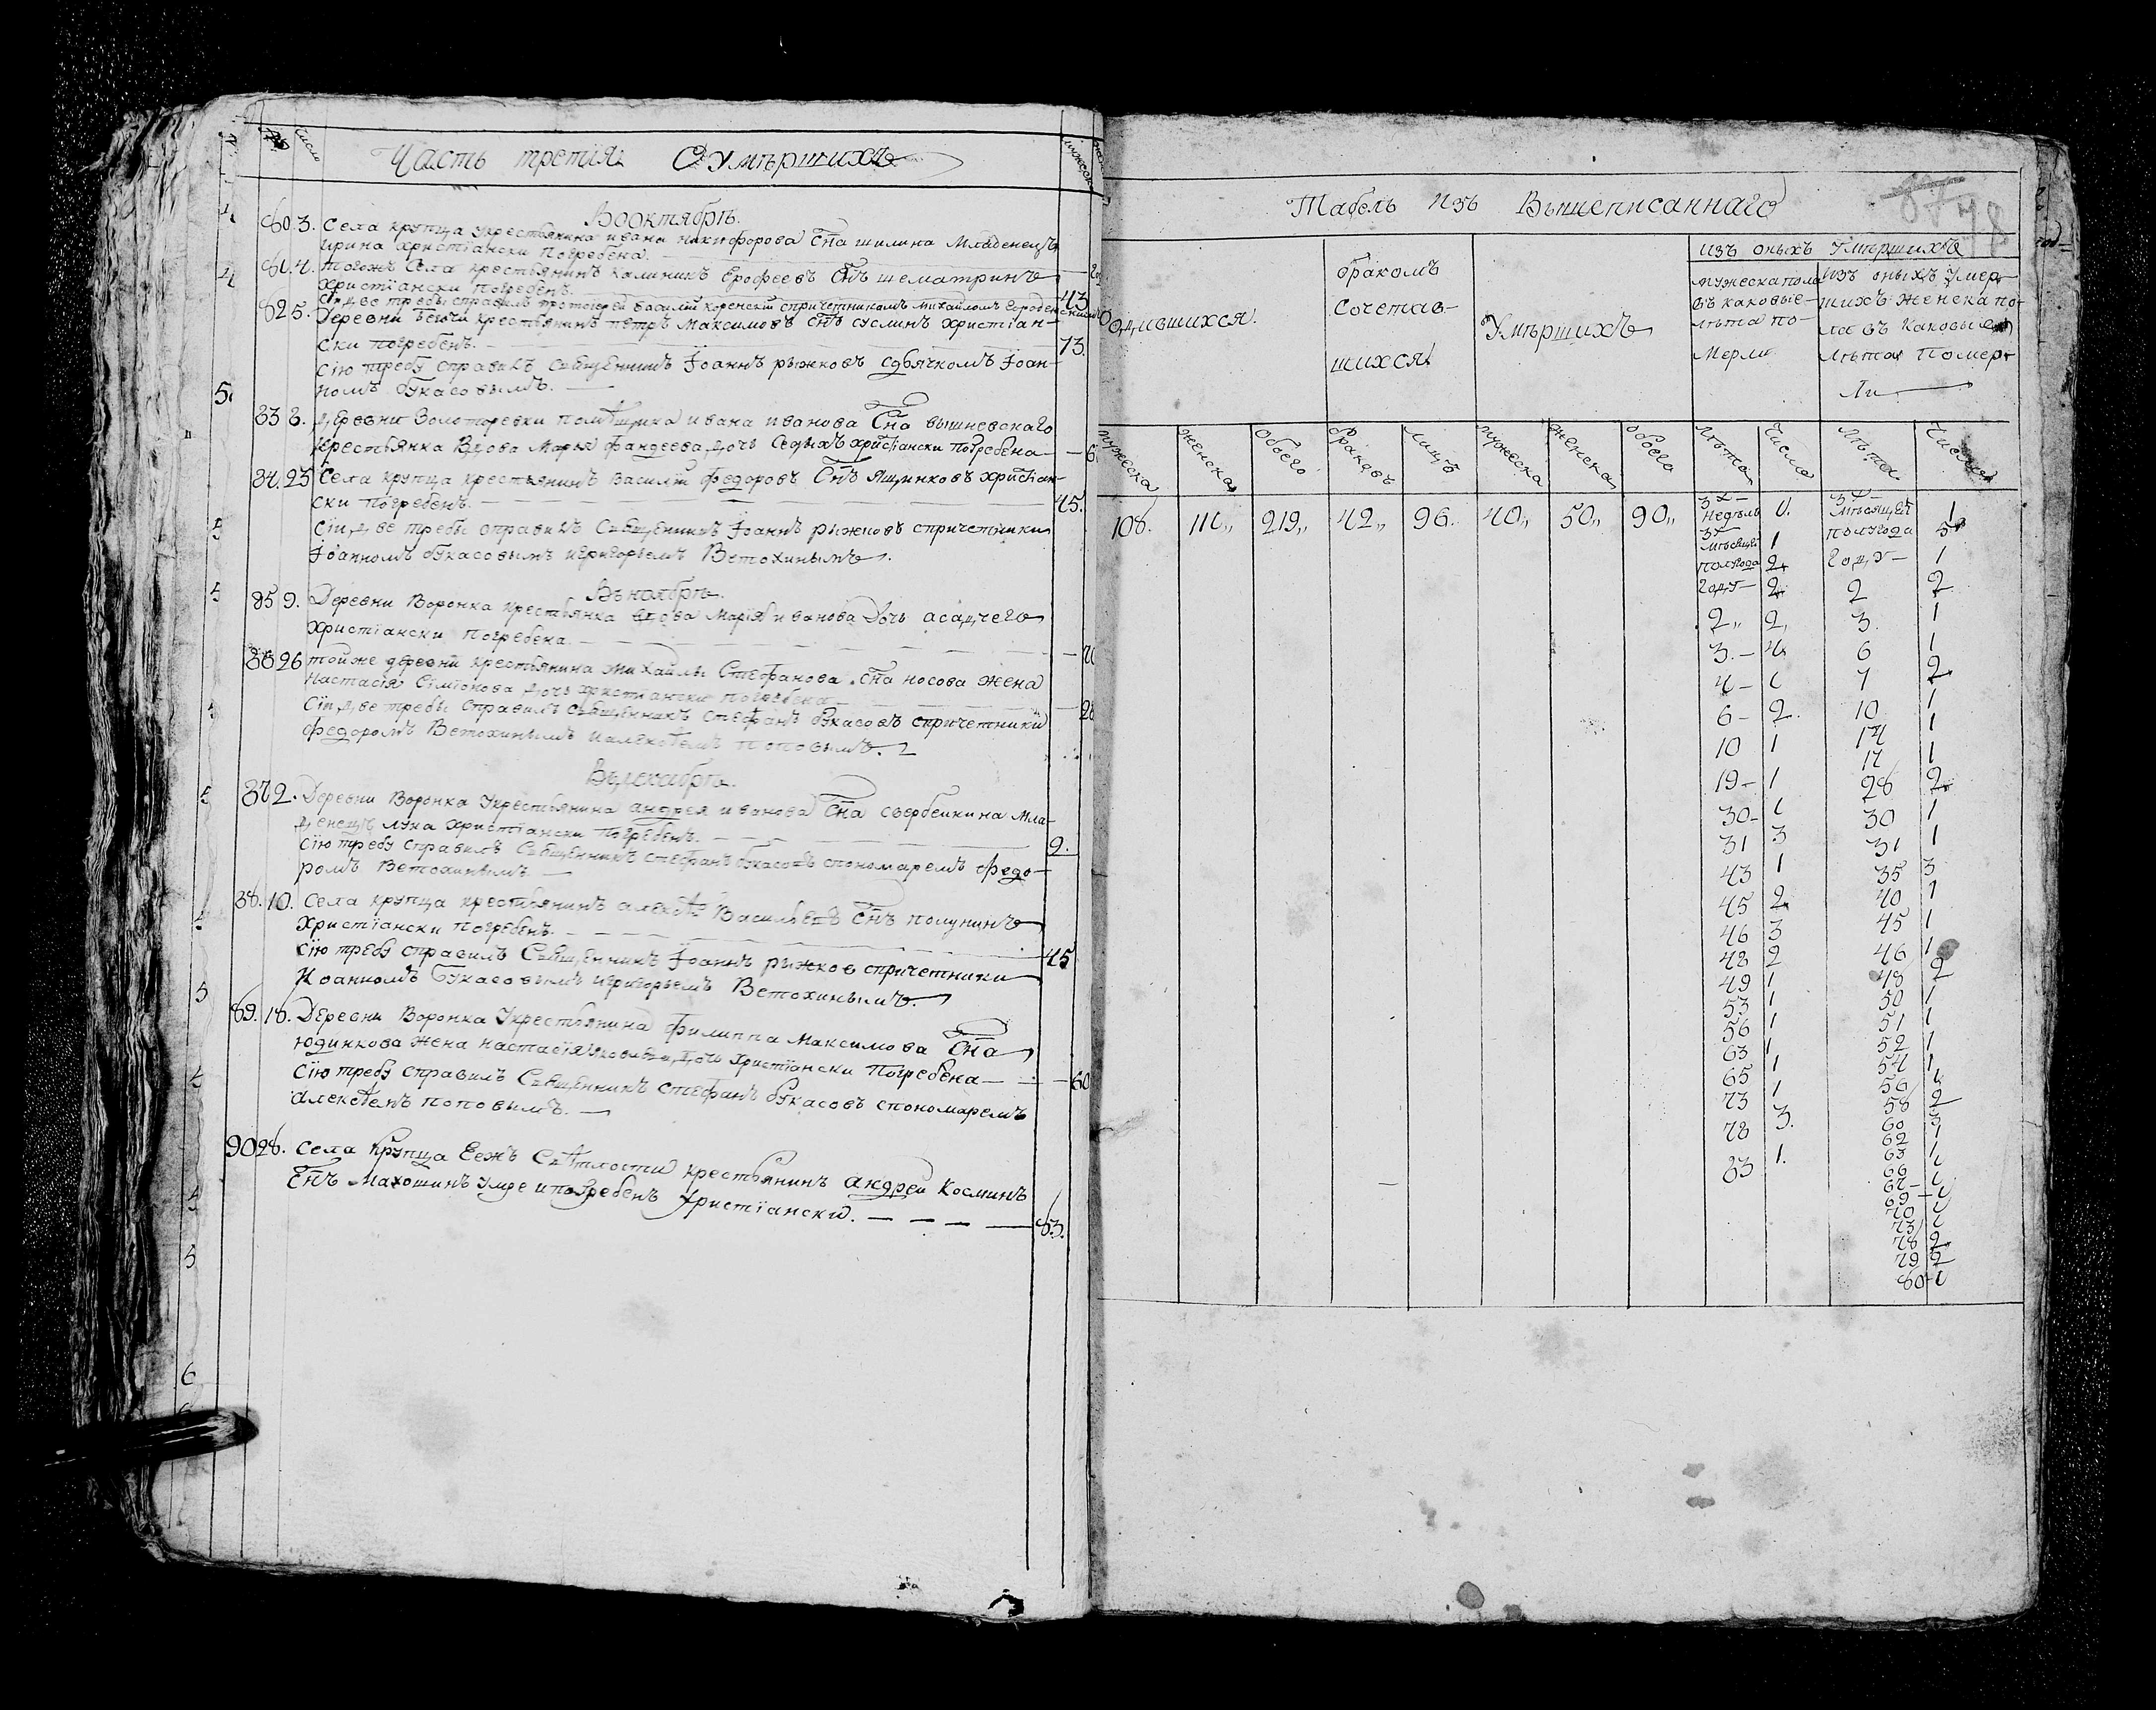 число
Часть третія О Умѣршихъ
Вооктябрѣ.
80. 3. Села крупца укрестьянина ивана никифорова сна шилина Младенецъ
ирина христіански погребена.
81. 4. тогожъ Села крестьянинъ Калиникъ Ерофеевъ Снъ шематринъ
христіански погребенъ. 43
Сіи две требы справилъ протоіерей василій спричетникомъ михайломъ
82 5. Деревни Беичи крестьянинъ петръ Максимовъ Снъ суслинъ христіан-
ски погребенъ. 73.
Сію требу справилъ Священникъ Іоаннъ рыжковъ сдьячкомъ Іоан-
номъ букасовымъ.
83 8. Деревни Золоторевки помѣщика ивана иванова Сна вышневскаго
крестьянка Вдова Марья фандеева дочь христіански погребена
84. 25 Села крупца крестьянинъ Василій федоровъ Снъ Ящинковъ христіан-
ски погребенъ. 45.
Сіи две требы справилъ Священникъ Іоаннъ рыжковъ спричетники
Іоанномъ букасовымъ игригорьемъ Ветохинымъ.
Въноябрѣ.
85 9. Деревни Воронка крестьянка вдова Марія иванова Дочь асадчего
христіански погребена.
86 26 тойже деревни крестьянина михайлы Стефанова сна носова жена
Настасія Симіонова дочь христіански погребена
Сіи две требы справилъ священникъ стефанъ букасовъ спричетники
федоромъ Ветохинымъ иалексѣемъ поповымъ.
Въдекабрѣ.
87 2. Деревни Воронка Укрестьянина андрея иванова Сна свербенкина мла-
денецъ лука христіански погребенъ. 9.
Сію требу справилъ Священникъ стефанъ букасовъ спономаремъ федо-
ромъ Ветохинымъ.
88. 10. Села крупца крестьянинъ алексѣй Васильевъ Снъ полунинъ
христіански погребенъ. 45
Сію требу справилъ Священникъ Іоаннъ рыжков спричетники
Иоанномъ Букасовымъ игригорьемъ Ветохинымъ.
89. 18. Деревни Воронка Укрестьянина филиппа Максимова Сна
юдинкова жена настасія яковлева дочь христіански погребена 60
Сію требу справилъ Священникъ стефанъ букасовъ спономаремъ
алексѣемъ поповымъ.
90 28. Села крупца Еежъ Свѣтлости крестьянинъ андрей Косминъ
Снъ Махошинъ умре ипогребенъ христіански. 83.
Табель изъ Вышеписаннаго
78
одившихся.
бракомъ
сочетав-
шихся
Умѣршихъ
изъ оныхъ умѣршихъ
мужеска пола
въ каковые-
лѣта по-
мерли
изъ оныхъ умер-
шихъ женска по-
ла въ каковые
лѣта помер-
ли
мужеска женска обоего браковъ лицъ мужеска женска обоего лѣта число лѣта число
108. 111 219 42 96. 40 50 90
3х недѣль 1.
мѣсяцей 1
полугода 2
годъ 2
2 2
3. 4
4 1
6 2.
10 1
19 1
30 1
31 3
43 1
45 2
46 3
48 2
49 1
53 1
56 1
63 1
65 1
73 1
78 3.
83 1.
3х мѣсяцей 1
полугода 5
годъ 1
2 2
3. 1
6 1
7 2
10 1
14 1
17 1
28 2
30 1
31 1
35 3
40 1
45 1
46 1
48 2
50 1
51 1
52 1
54 1
56
58 2
60 3
62 1
63 1
66 1
67 1
69 1
70 1
73 1
78 2
79 2
80 1